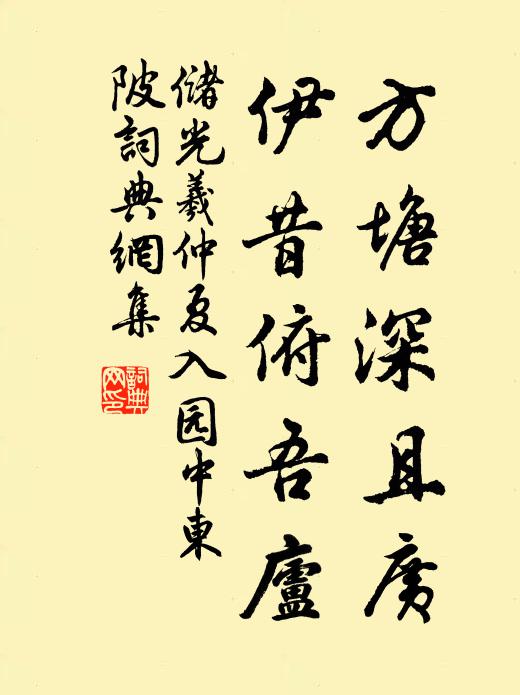 方塘深且廣
伊昔俯吾廬
儲光羲仲夏入园中東
陂詞典網集
詞典網印